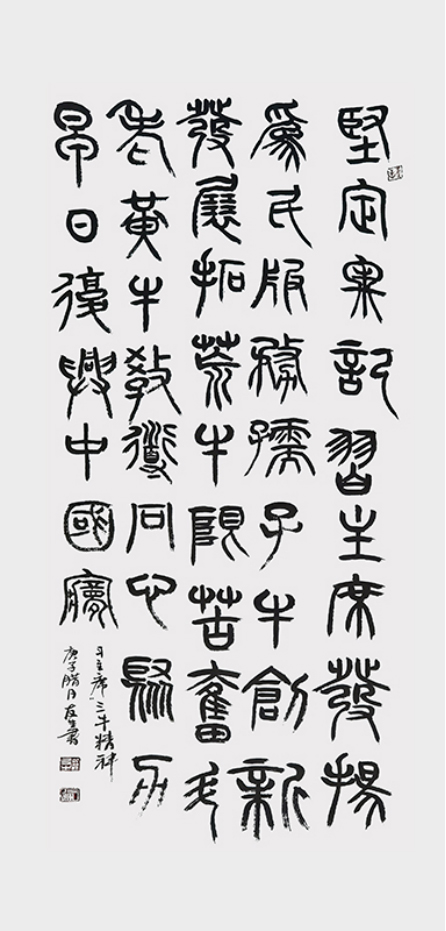 堅定記習主席發揚
爲民服務孺子牛創新
發展拓荒牛艱苦奮
老黃牛教導同心聚力
早日復興中國夢
习主席"三牛精神"
庚子腊月友生書